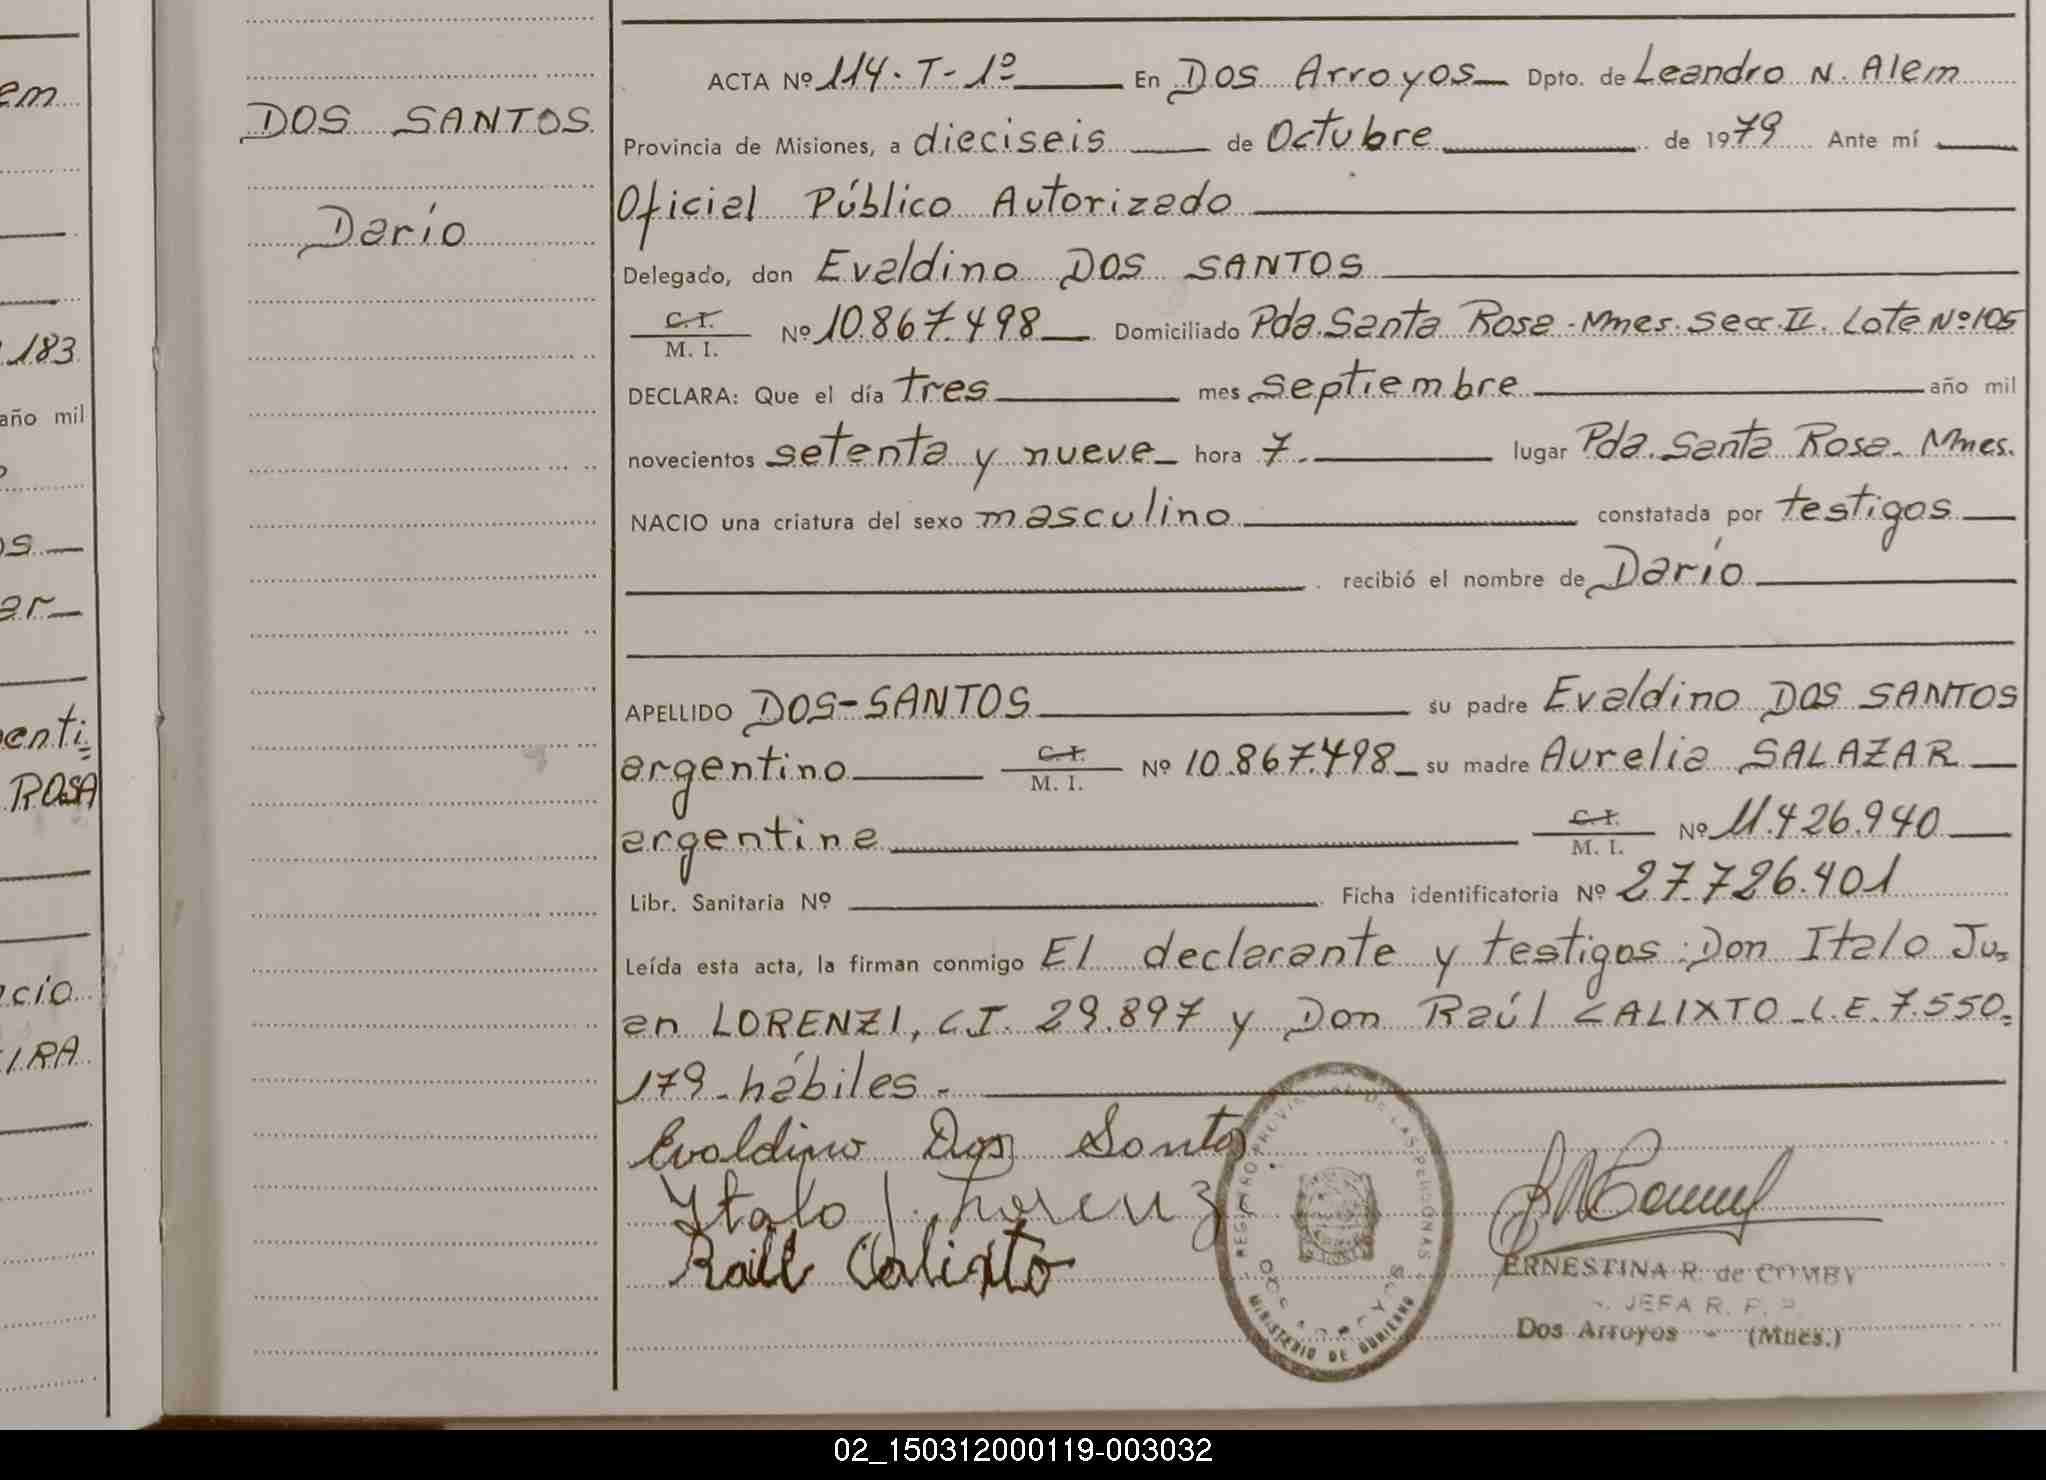 DOS SANTOS
Darío
ACTA Nº 114. T- 1º En Dos Arroyos Dpto. de Leandro N. Alem
Provincia de Misiones, a dieciseis de Octubre de 1979 Ante mí
Oficial Público Autorizado
Delegado, don Evaldino DOS SANTOS
C.I. M. I. Nº 10.867.498 Domiciliado Pda. Santa Rosa - Mnes. Secc. II. Lote Nº 105
DECLARA: Que el día tres mes septiembre año mil
novecientos setenta y nueve hora 7.- lugar Pda. Santa Rosa - Mnes.
NACIO una criatura del sexo masculino constatada por testigos
recibió el nombre de Darío
APELLIDO DOS-SANTOS su padre Evaldino DOS SANTOS
argentino C.I. M. I. Nº 10.867.498 su madre Aurelia SALAZAR
argentina C.I. M. I. Nº 11.426.940
Libr. Sanitaria Nº Ficha identificatoria Nº 27.726.401
Leída esta acta, la firman conmigo El declarante y testigos: Don Italo Ju=
an LORENZI, C.I. 29.897 y Don Raúl CALIXTO - L.E. 7.550.=
179 - hábiles.-
Evaldino Dos Santos
Italo J. Lorenzi
Raúl Calixto
REGISTRO PROVINCIAL DE LAS PERSONAS
DOS ARROYOS
MINISTERIO DE GOBIERNO
ERNESTINA R. de COMBY
JEFA R. P. P.
Dos Arroyos - (Mnes.)
em
.183
año mil
os
ar
enti=
ROSA
cio
IRA
02_150312000119-003032